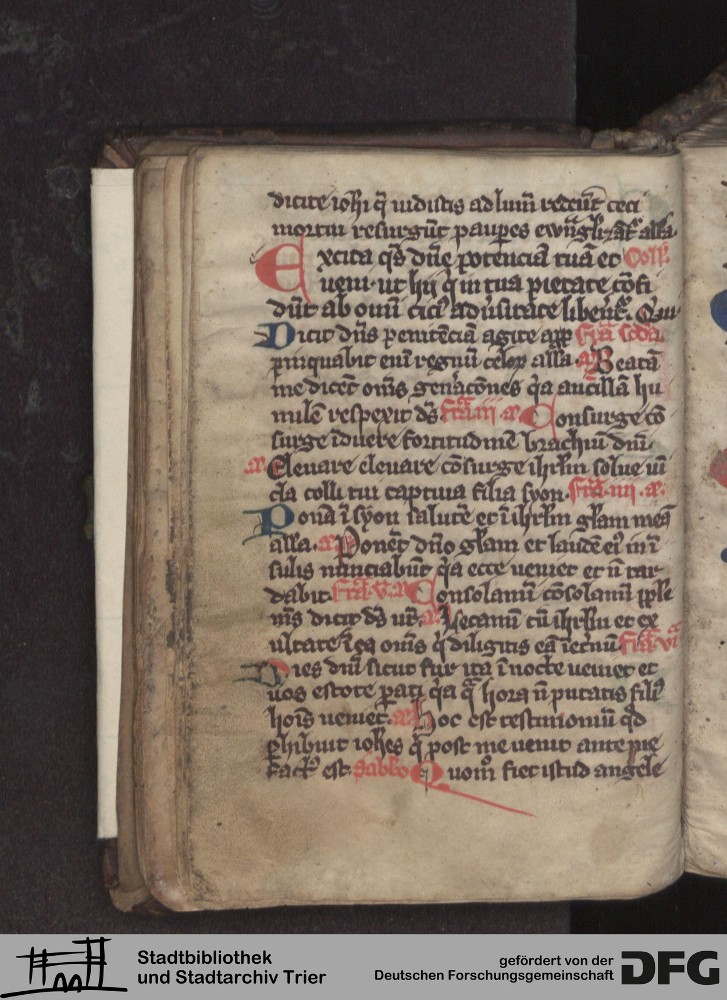 dicite ioh̄i q̄ uidistis ad lum̄ redeūt ceci
mortui resurgūt paup̄es ewāgliȥāt᷑ alla
Excita qs̄ dn̄e potenciā tuā et Coll᷑
ueni ut hii q̄ in tua pietate cōfi
dūt ab om̄i cici᷑ adu᷑sitate libent᷑. Qui
Dicit dn̄s penitēciā agite app̄ fr̄ia scd̄a
pinquabit eni᷑ regnū celoꝝ alla a᷑ Beatā
me dicēt om̄s gen᷑acōnes q̄a ancillā hu
milē respexit ds̄ fr̄ia iii a᷑ Consurge cō
surge īduere fortitudinē brachiū dn̄i.
a᷑ Eleuare eleuare cōsurge ihrl̄m solue ui
cla colli tui captiua filia syon. fr̄ia iiii a᷑
Ponā ī syon salutē et ī ihrl̄m gl̄am meā
alla. a᷑ Ponēt dn̄o gl̄am et laudē ei᷑ in ī
sulis nūnciabūt q̄a ecce ueniet et n̄ tar
dabit. fr̄ia v. a᷑ Consolamī cōsolamī ppl̄e
m̄s dicit ds̄ ur̄. a᷑ Letamī cū ihrl̄m et ex
ultate ī ea om̄s q̄ diligitis eā ī et᷑nū fr̄ia vi
Dies dn̄i sicut fur ita ī nocte ueniet et
uos estote p̄ati q̄a q̄ hora n̄ putatis fili᷑
hoīs ueniet. a᷑ Hoc est testimoniū qd̄
p̄hibuit ioh̄es q̄ post me uenit ante me
fact᷑ est. Sabbo Quom̄ fiet istud angele
Stadtbibliothek
und Stadtarchiv Trier
gefördert von der
Deutschen Forschungsgemeinschaft
DFG